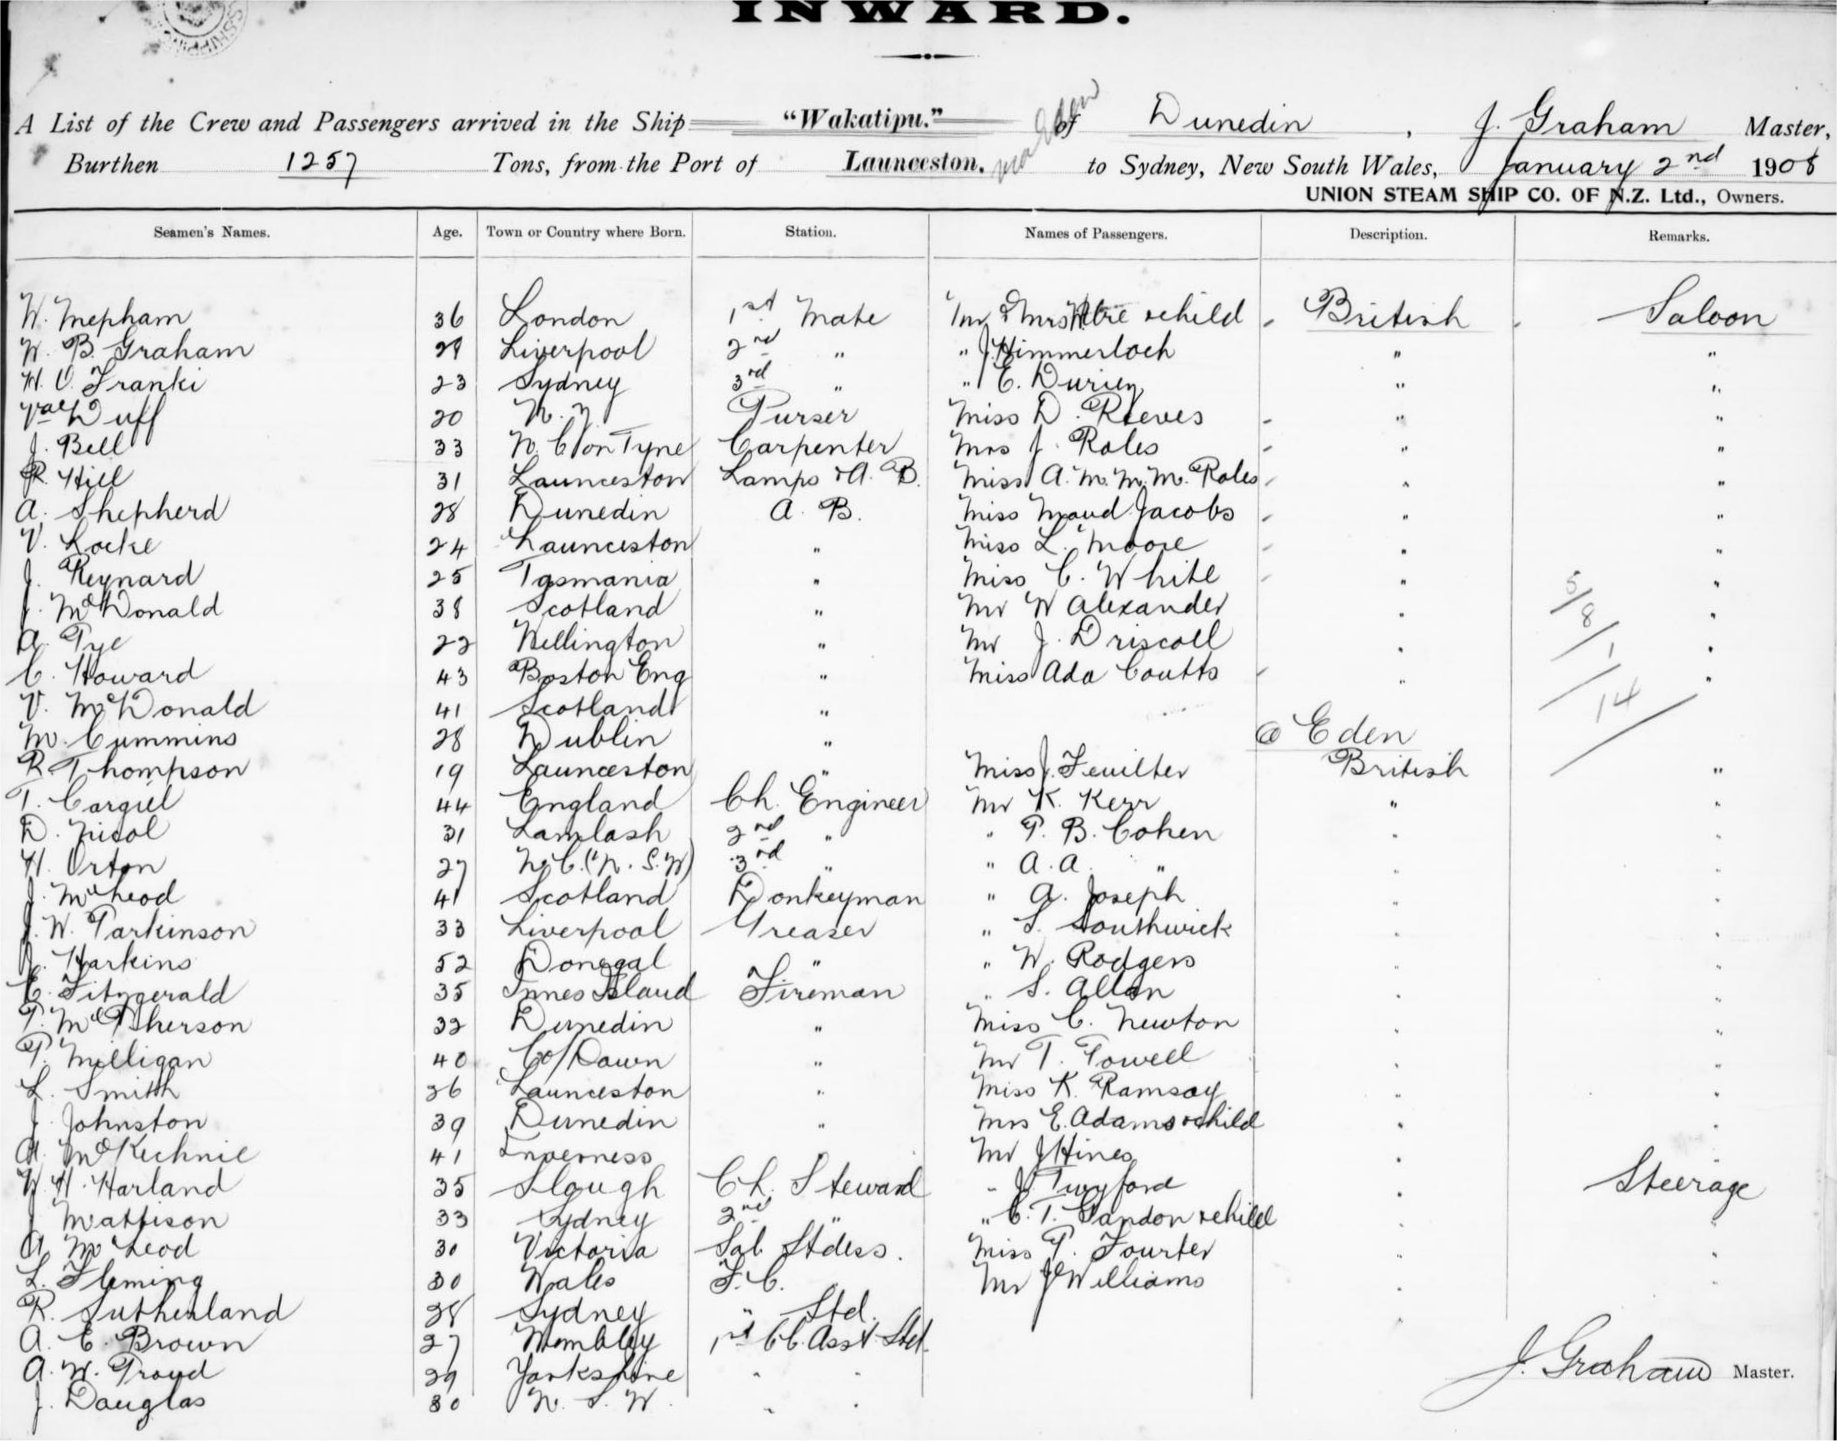 INWARD.
A List of the Crew and Passengers arrived in the Ship "Wakatipu." of Dunedin, J. Graham Master,
via Eden
Burthen 1257 Tons, from the Port of Launceston, to Sydney, New South Wales, January 2nd 1908
UNION STEAM SHIP CO. OF N.Z. Ltd., Owners.
Seamen's Names. Age. Town or Country where Born. Station. Names of Passengers. Description. Remarks.
W. Mepham 36 London 1st Mate Mr & Mrs & child British Saloon
W. B. Graham 29 Liverpool 2nd " " J. Himmerloch " "
H. V. Franki 23 Sydney 3rd " " E. " "
Val Duff 20 N. Z Purser Miss D. Reeves " "
J. Bell 33 N. C on Tyne Carpenter Mrs J. Roles " "
R. Hill 31 Launceston Lamps & A. B. Miss A. M. M. M. Roles " "
A. Shepherd 28 Dunedin A. B. Miss Maud Jacobs " "
V. Locke 24 Launceston " Miss L. Moore " "
J. Reynard 25 Tasmania " Miss C. White " 5/ "
J. McDonald 38 Scotland " Mr W Alexander " 8 "
A. Tye 22 Wellington " Mr J. Driscoll " / 1 "
C. Howard 43 Boston Eng " Miss Ada Coutts " "
V. McDonald 41 Scotland " 14
M. Cummins 28 Dublin " @ Eden
R. Thompson 19 Launceston " Miss J. Feuilter British "
T. Cargill 44 England Ch. Engineer Mr K. Kerr " "
D. Nicol 31 Lamlash 2nd " " P. B. Cohen " "
H. Orton 27 N. C. (N. S. W) 3rd " " A. A. " " "
J. McLeod 41 Scotland Donkeyman " A. Joseph " "
J. W. Parkinson 33 Liverpool Greaser " S. Southwick " "
J. Harkins 52 Donegal " " W. Rodgers " "
E. Fitzgerald 35 Innes Island Fireman " S. Allan " "
P. McPherson 32 Dunedin " Miss C. Newton " "
P. Milligan 40 Co/Down " Mr T. Powell " "
L. Smith 26 Launceston " Miss K. Ramsay " "
J. Johnston 39 Dunedin " Mrs E. Adams & child " "
A. McKechnie 41 Inverness Mr J Hines " "
W. H. Harland 35 Slough Ch. Steward " J. Twyford " Steerage
J Mattison 33 Sydney 2nd " " C. T. Gandon & child " "
A. McLeod 30 Victoria Sal Stdess. Miss P. Fourter " "
L. Fleming 30 Wales F. C. Mr J Williams " "
R. Sutherland 28 Sydney " Std. "
A. E. Brown 27 Wembley 1st CC. Asst Std.
A. W. Proud 29 Yorkshire " "
J. Graham Master.
J. Douglas 30 N. S. W. " "